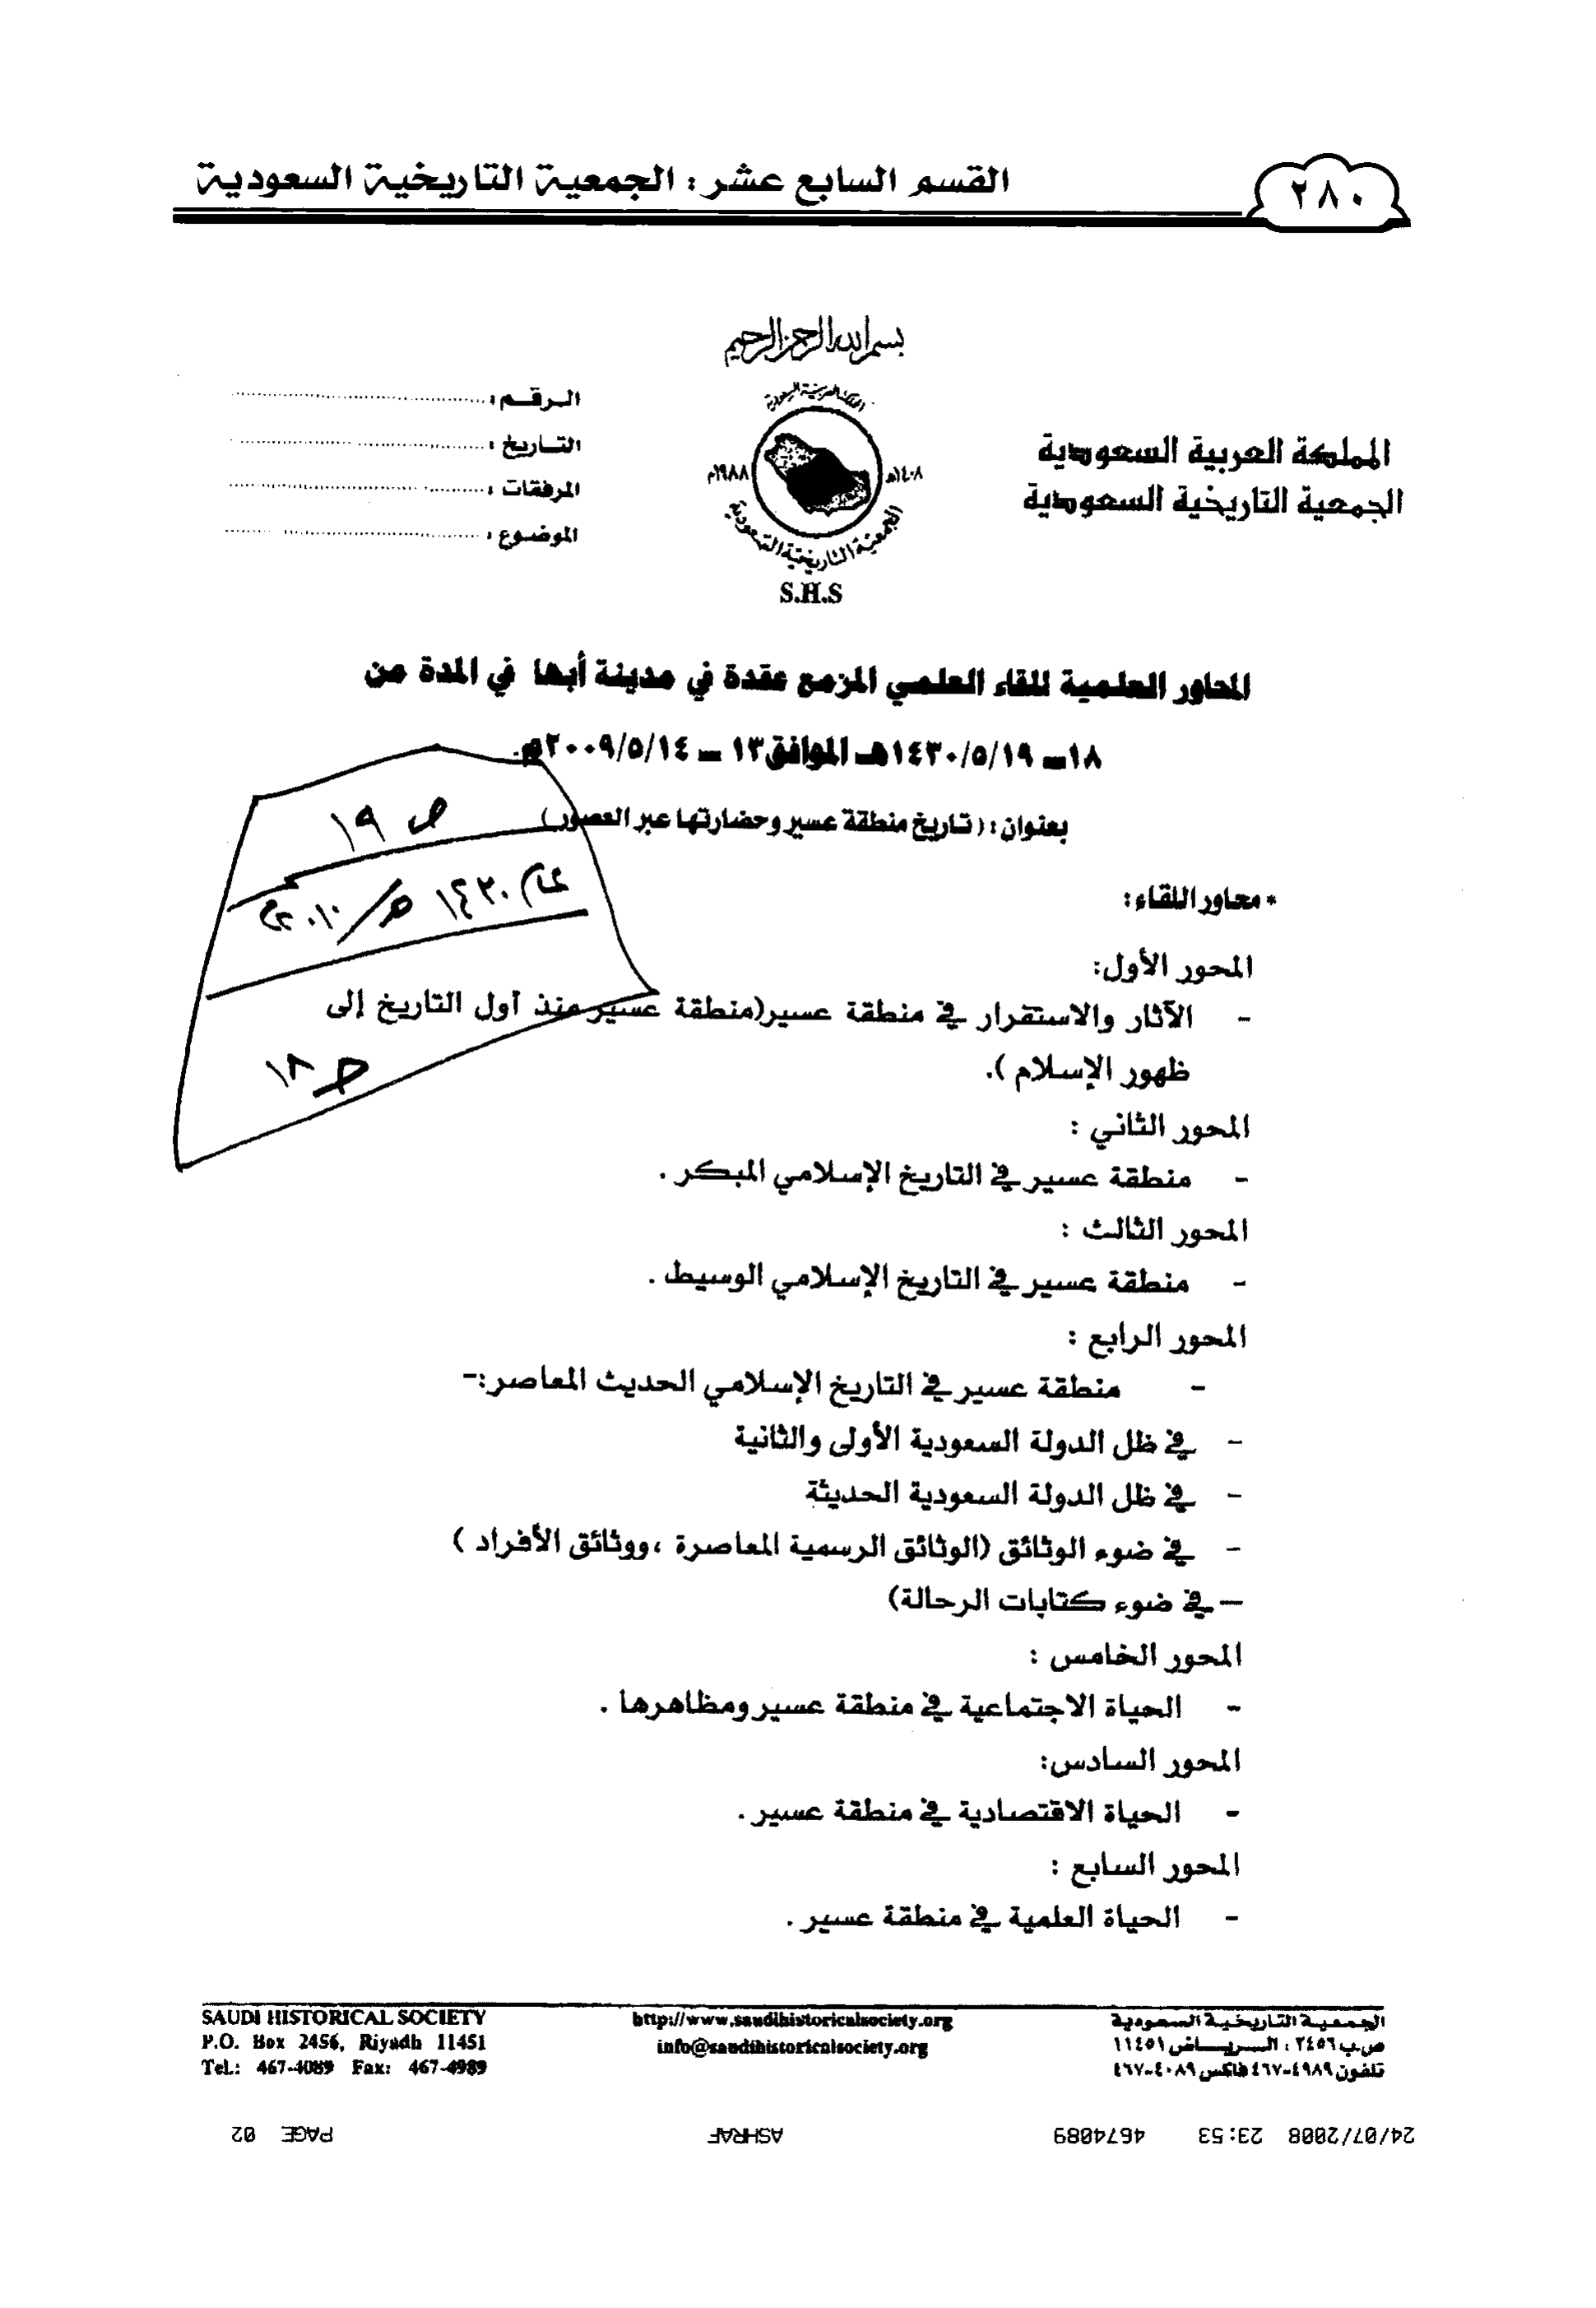 ٢٨٠
القسم السابع عشر : الجمعية التاريخية السعودية
بسم الله الرحمن الرحيم
المملكة العربية السعودية
الجمعية التاريخية السعودية
المملكة العربية السعودية
١٤٠٨هـ
١٩٨٨م
الجمعية التاريخية السعودية
S.H.S
الـرقـم :
التـاريخ :
المرفقات :
الموضوع :
المحاور العلمية للقاء العلمي المزمع عقدة في مدينة أبها في المدة من
١٨ــ ١٤٣٠/٥/١٩هـ الموافق١٣ ــ ٢٠٠٩/٥/١٤م.
بعنوان : ( تاريخ منطقة عسير وحضارتها عبر العصور )
ص ١٩
عام ١٤٣٠ هـ/٢٠١٠م
ص ١٨
* محاور اللقاء:
المحور الأول:
- الآثار والاستقرار في منطقة عسير(منطقة عسير منذ أول التاريخ إلى
ظهور الإسلام ).
المحور الثاني :
- منطقة عسير في التاريخ الإسلامي المبكر .
المحور الثالث :
- منطقة عسير في التاريخ الإسلامي الوسيط .
المحور الرابع :
- منطقة عسير في التاريخ الإسلامي الحديث المعاصر:-
- في ظل الدولة السعودية الأولى والثانية
- في ظل الدولة السعودية الحديثة
- في ضوء الوثائق (الوثائق الرسمية المعاصرة ،ووثائق الأفراد )
– في ضوء كتابات الرحالة)
المحور الخامس :
- الحياة الاجتماعية في منطقة عسير ومظاهرها .
المحور السادس:
- الحياة الاقتصادية في منطقة عسير .
المحور السابع :
- الحياة العلمية في منطقة عسير .
الجمعية التاريخية السعودية
ص.ب ٢٤٥٦ ، الـريـاض ١١٤٥١
تلفون ٤٩٨٩-٤٦٧ فاكس ٤٠٨٩-٤٦٧
http://www.saudihistoricalsociety.org
info@saudihistoricalsociety.org
SAUDI HISTORICAL SOCIETY
P.O. Box 2456, Riyadh 11451
Tel.: 467-4089 Fax: 467-4989
24/07/2008 23:53 4674089 ASHRAF PAGE 02